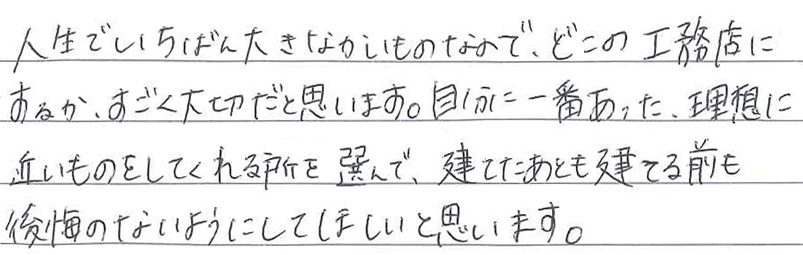 人生でいちばん大きなかいものなので、どこの工務店に
するか、すごく大切だと思います。自分に一番あった、理想に
近いものをしてくれる所を選んで、建てたあとも建てる前も
後悔のないようにしてほしいと思います。